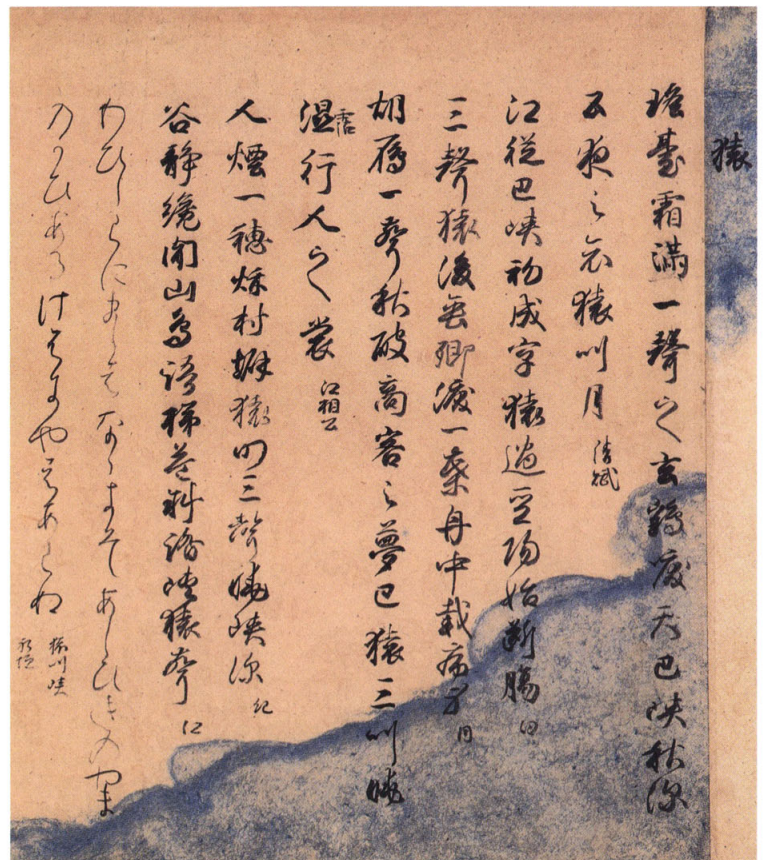 猿
瑤臺霜滿一聲之玄鶴唳天巴峡秋深
五夜之哀猿叫月 清賦
江従巴峡初成字猿過巫陽始断腸 白
三聲猿後垂郷涙一葉舟中載病身 同
胡鴈一聲秋破商客之夢巴猿三叫暁
湿行人之裳 江相公
霑
人煙一穂秋村僻猿叫三聲暁峡深 紀
谷静纔聞山鳥語梯危斜踏峡猿聲 江
わひしらにましらはなゝきそあしひきのやま
のかひあるけふにやはあらぬ
猿叫峡
躬恒